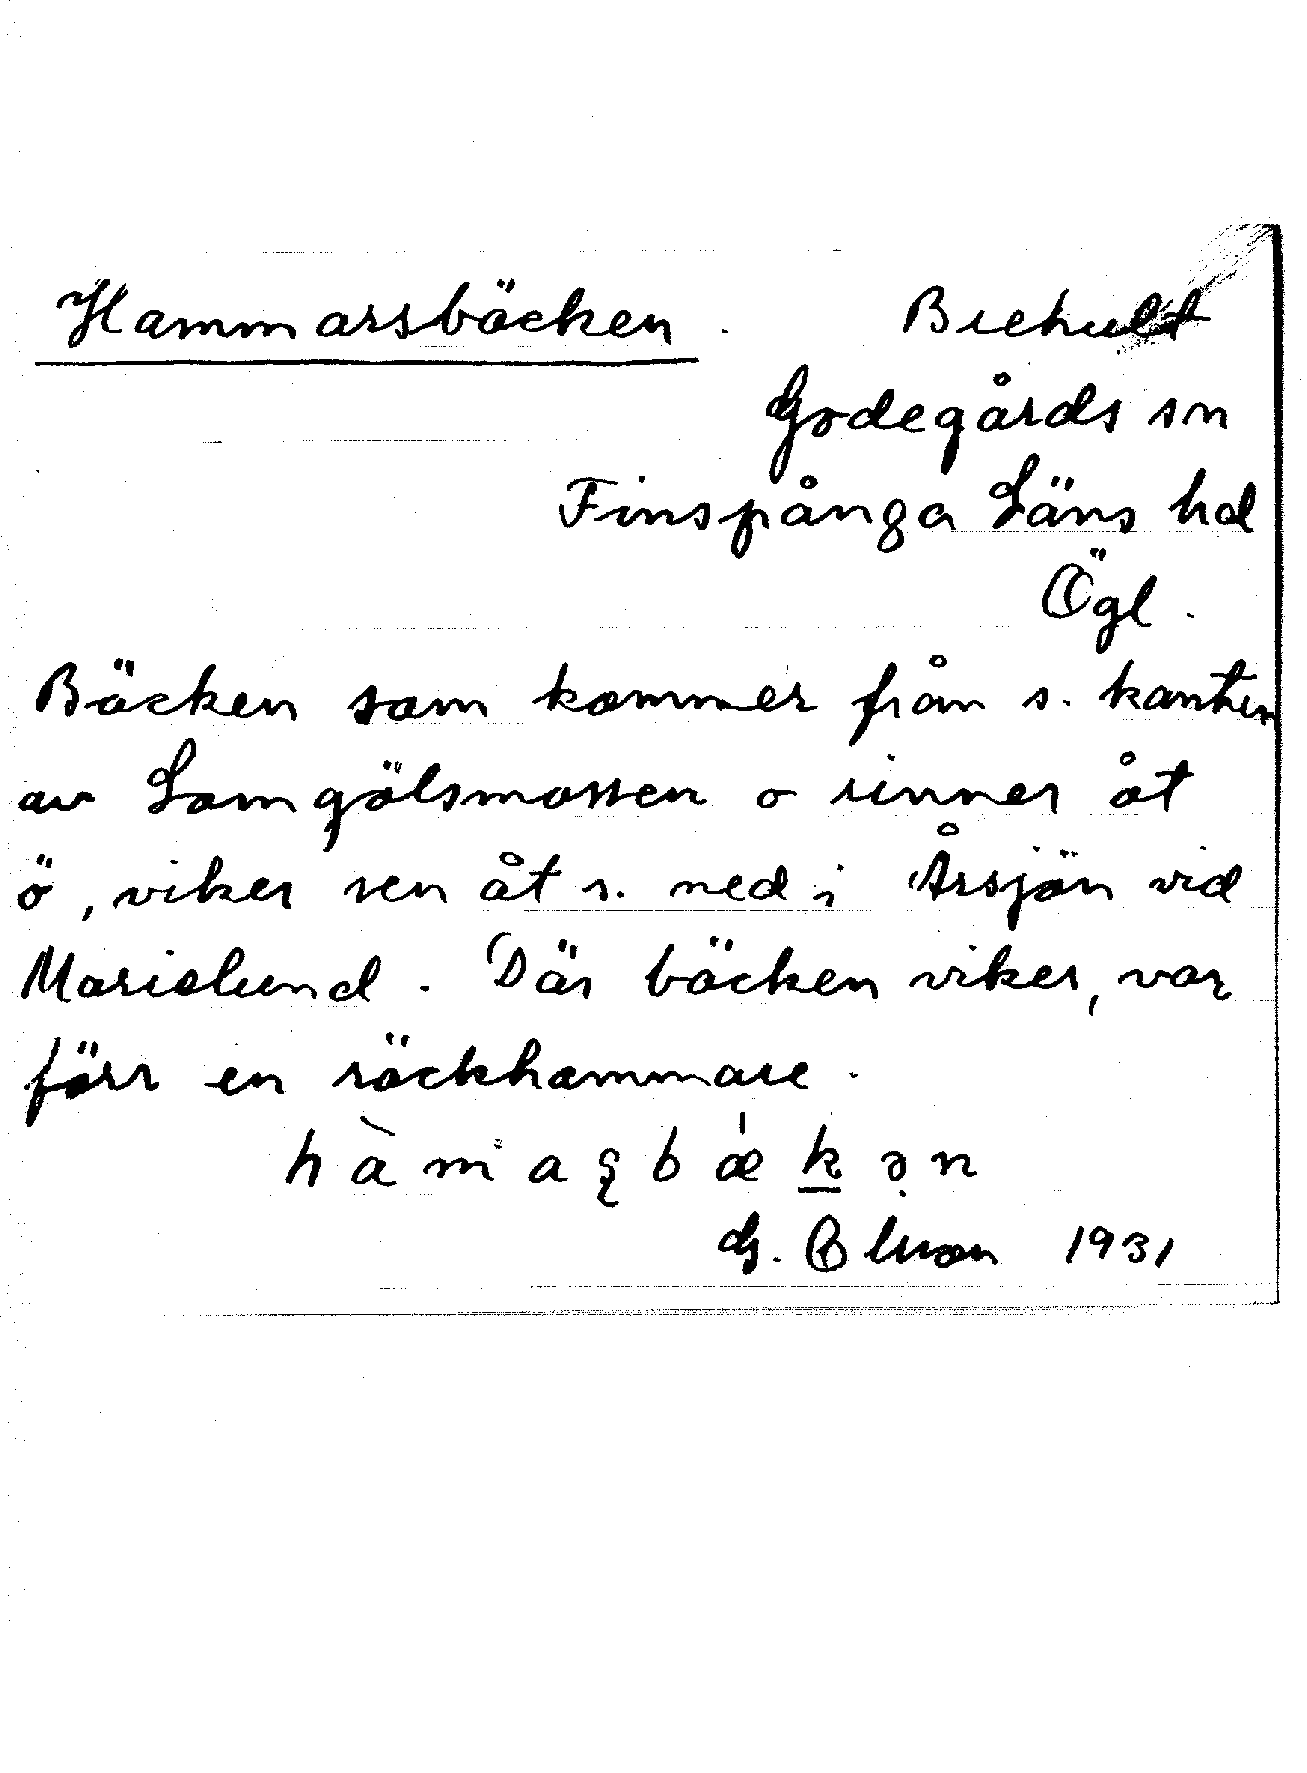 Hammarsbäcken. Brehult
Godegårds sn
Finspånga Läns hd
Ögl.
Bäcken som kommer från s. kanten
av Lomgölsmossen o rinner åt
ö, viker sen åt s. ned i Årsjön vid
Marielund. Där bäcken viker, var
förr en räckhammare.
hàmaʂbǽkən
G. 1931